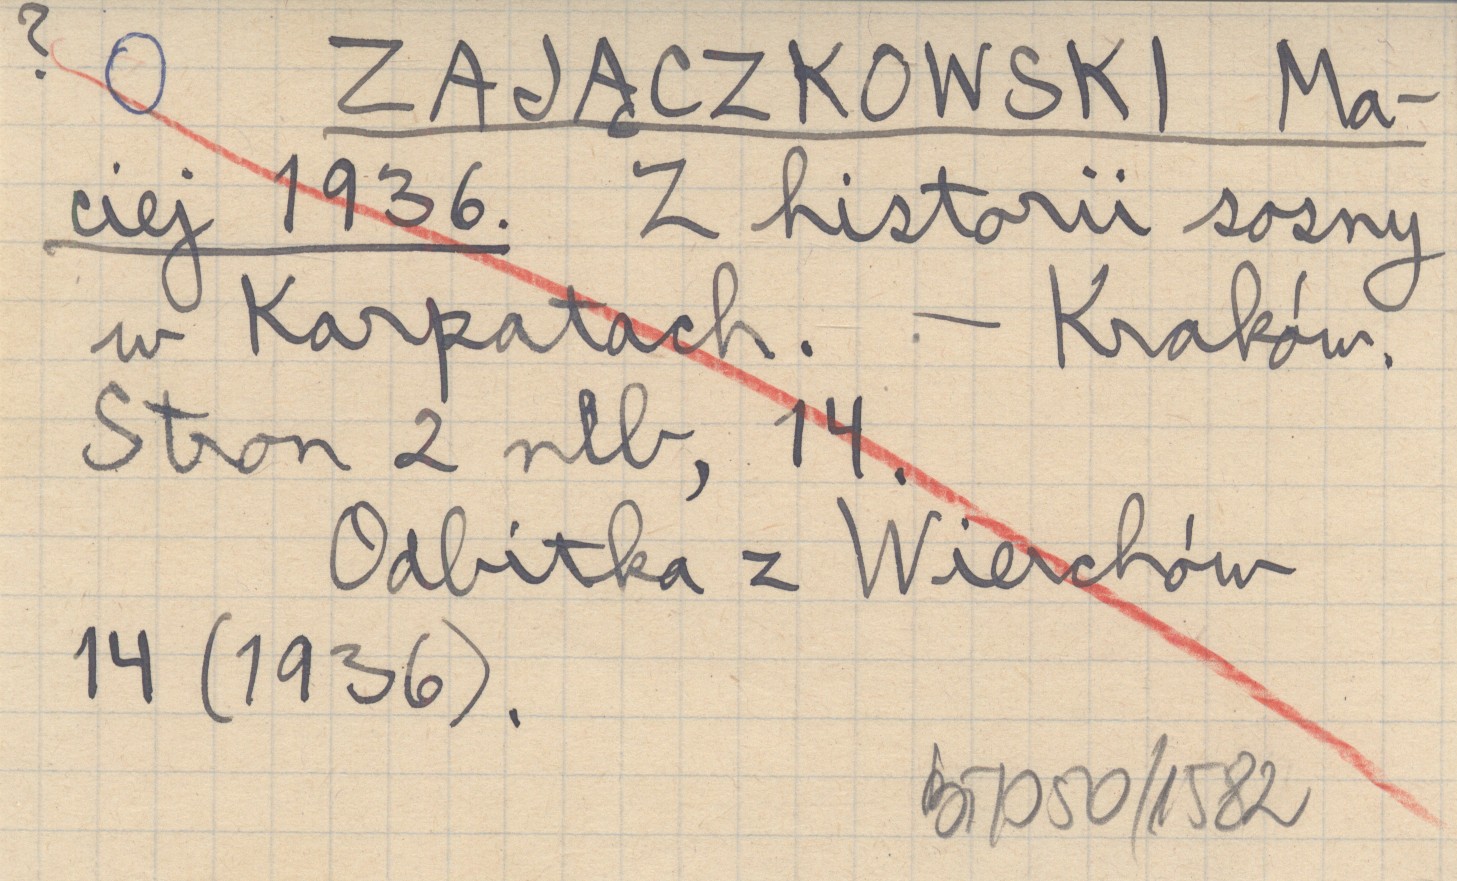 ? O ZAJĄCZKOWSKI Ma-
ciej 1936. Z historii sosny
w Karpatach. – Kraków.
Stron 2 nlb, 14.
Odbitka z Wierchów
14 (1936).
50/1582